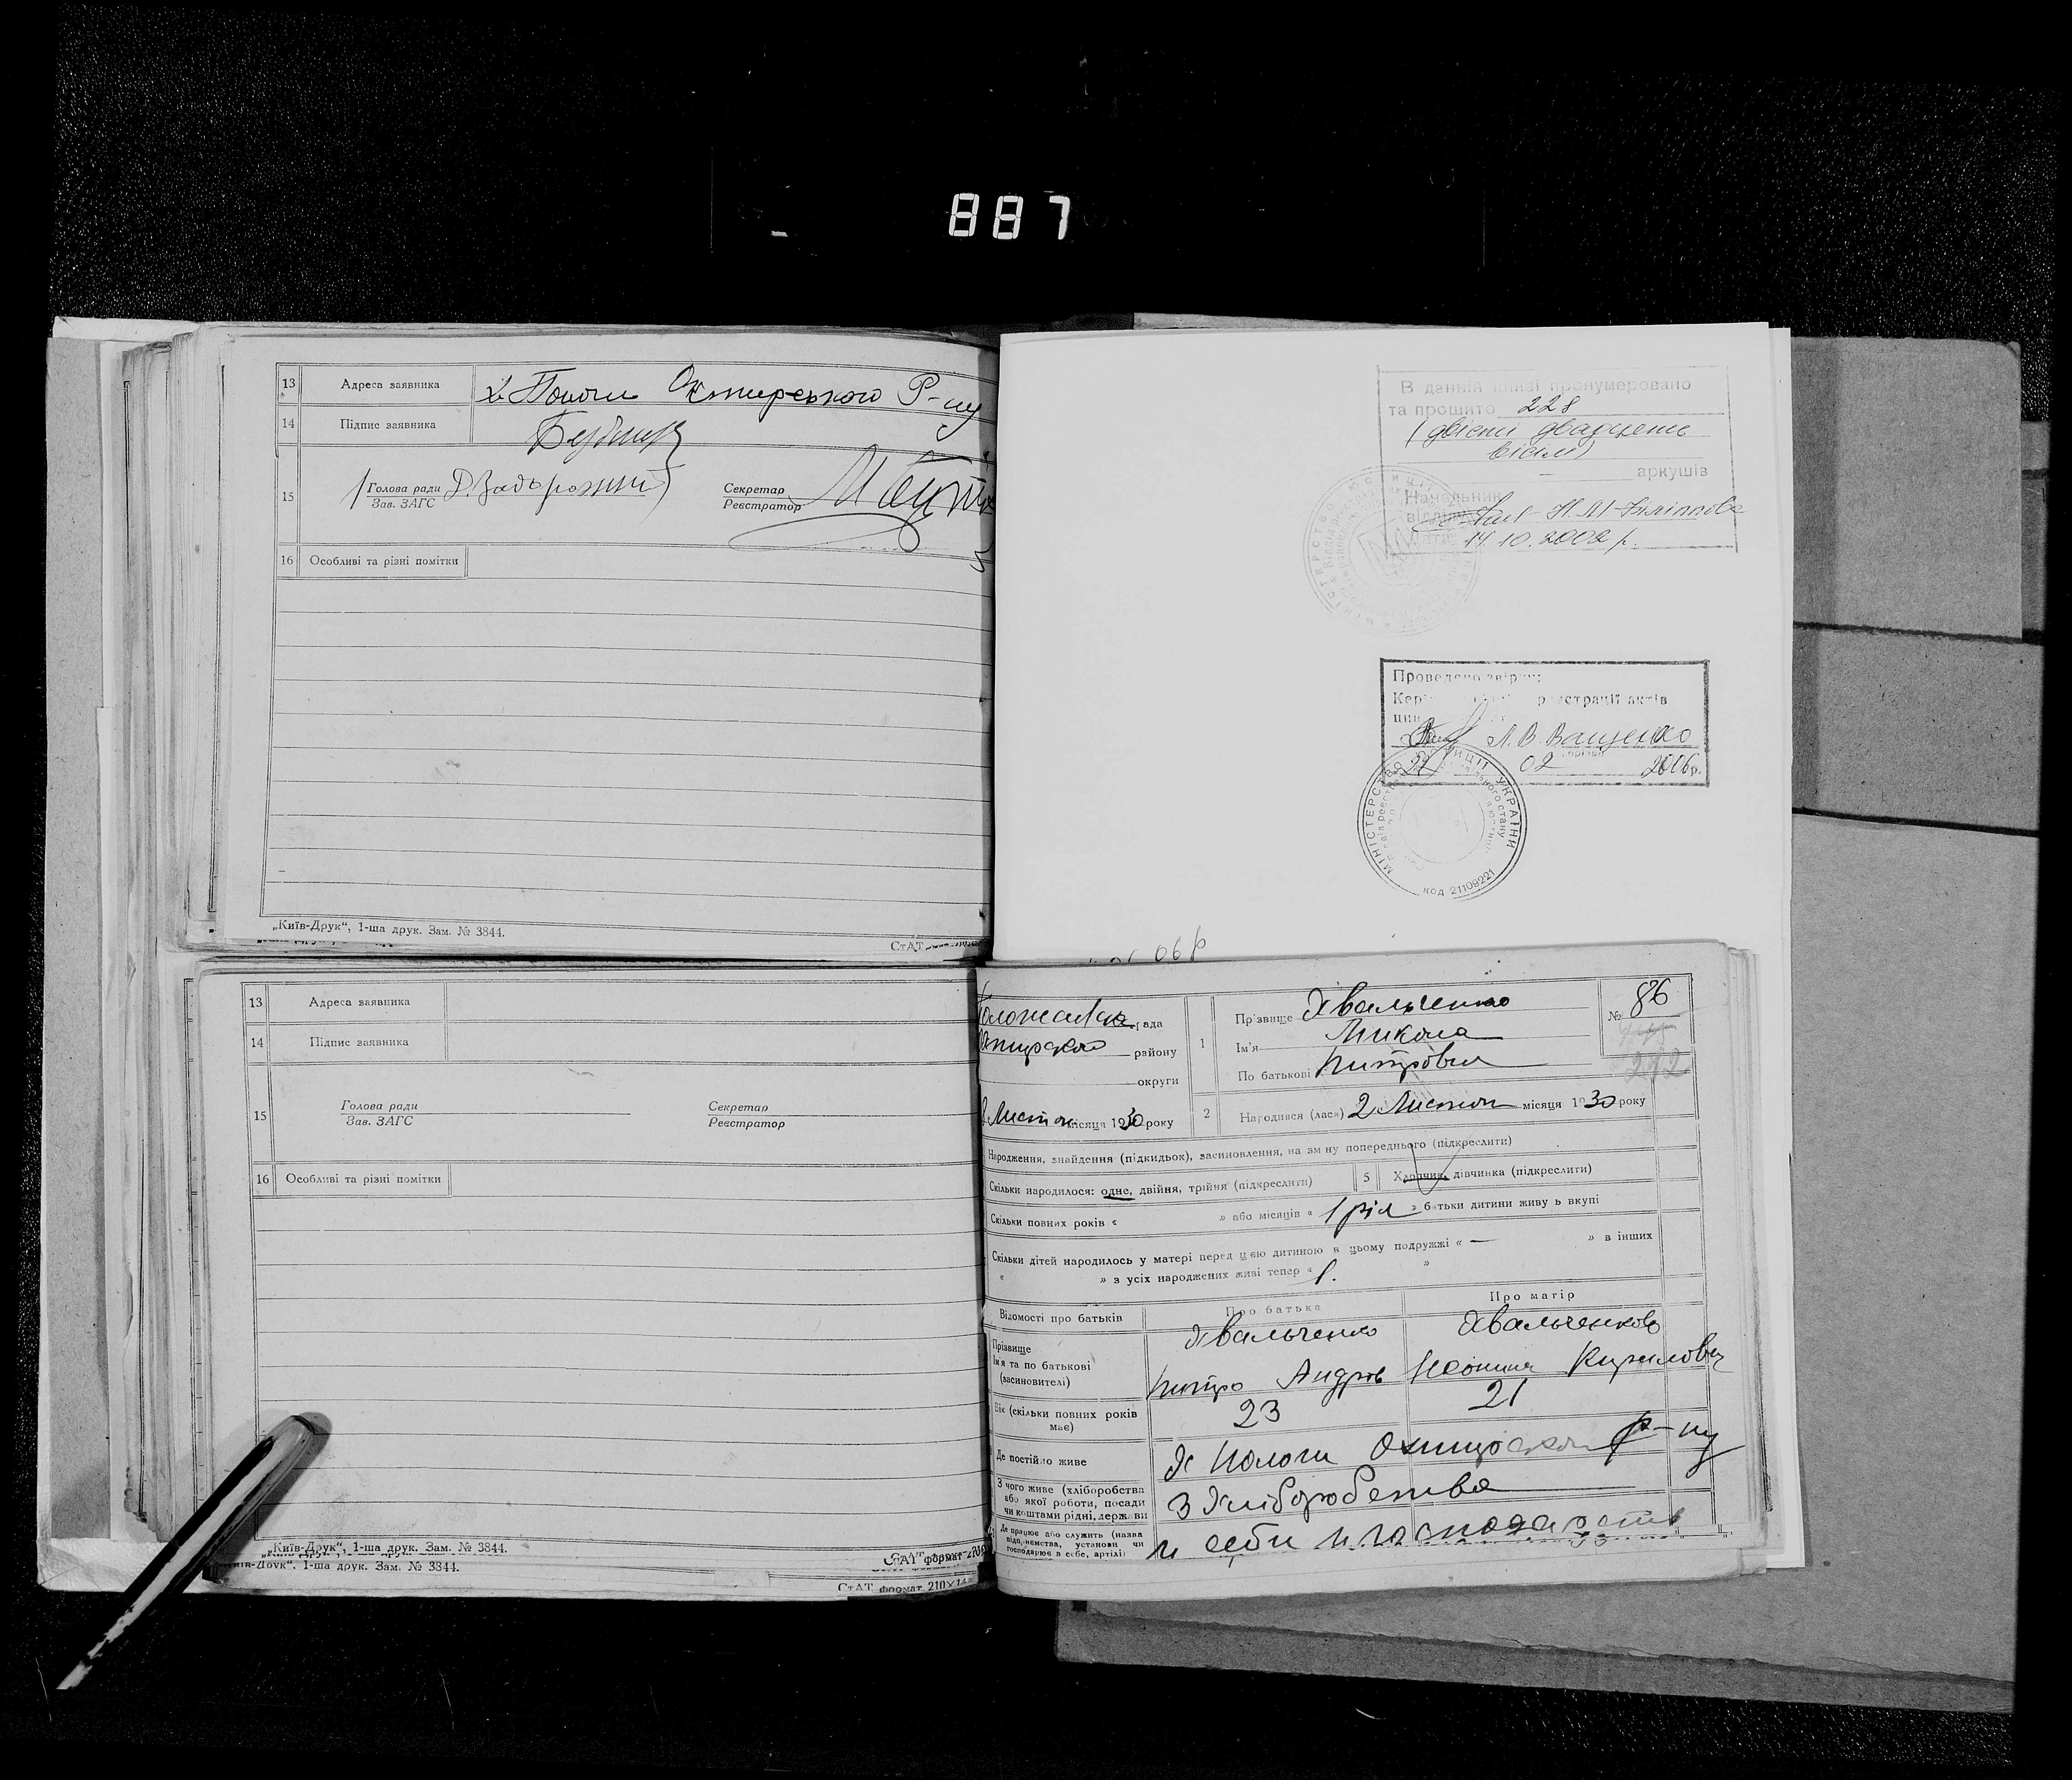 887
13 Адреса заявника х. Пологи Охтирського Р-ну
14 Підпис заявника
15 Голова ради Д. Задорожний Секретар
Зав. ЗАГС Реєстратор
16 Особливі та різні помітки
„Київ-Друк“, 1-ша друк. Зам. № 3844.
СтАТ
В данній книзі пронумеровано
та прошито 228
(двісті двадцять
вісім)
аркушів
Начальник
відділу
14.10.2002 р.
Проведено звірку
реєстрації актів
Л. В. Ващенко
02 2006р.
МІНІСТЕРСТВО ЮСТИЦІЇ УКРАЇНИ
код 21109221
06 р
13 Адреса заявника
14 Підпис заявника
15 Голова ради Секретар
Зав. ЗАГС Реєстратор
16 Особливі та різні помітки
„Київ-Друк“, 1-ша друк. Зам. № 3844.
СтАТ формат
„Київ-Друк“, 1-ша друк. Зам. № 3844.
СтАТ формат 210×14
рада
району
округи
місяця 1930 року
1 Прізвище Хвальченко
Ім'я Микола
По батькові Питрович
№ 86
242
2 Народився (лася) 2 Листоп місяця 1930 року
Народження, знайдення (підкидьок), засиновлення, на зміну попереднього (підкреслити)
Скільки народилося: одне, двійня, трійня (підкреслити) 5 Хлопчик, дівчинка (підкреслити)
Скільки повних років « » або місяців « 1 рік » батьки дитини живуть вкупі
Скільки дітей народилось у матері перед цією дитиною в цьому подружжі « — » в інших
« » з усіх народжених живі тепер « 1. »
Відомості про батьків Про батька Про матір
Прізвище Хвальченко Хвальченкова
Ім'я та по батькові
(засиновителі) Питро Андрів Кирилов
Вік (скільки повних років
має) 23 21
Де постійно живе Х Пологи Охтирского р-ну
З чого живе (хліборобства
або якої роботи, посади
чи коштами рідні, держави З Хліборобства
Де працює або служить (назва
підприємства, установи чи
господарює в себе, артілі) и себи и господарств